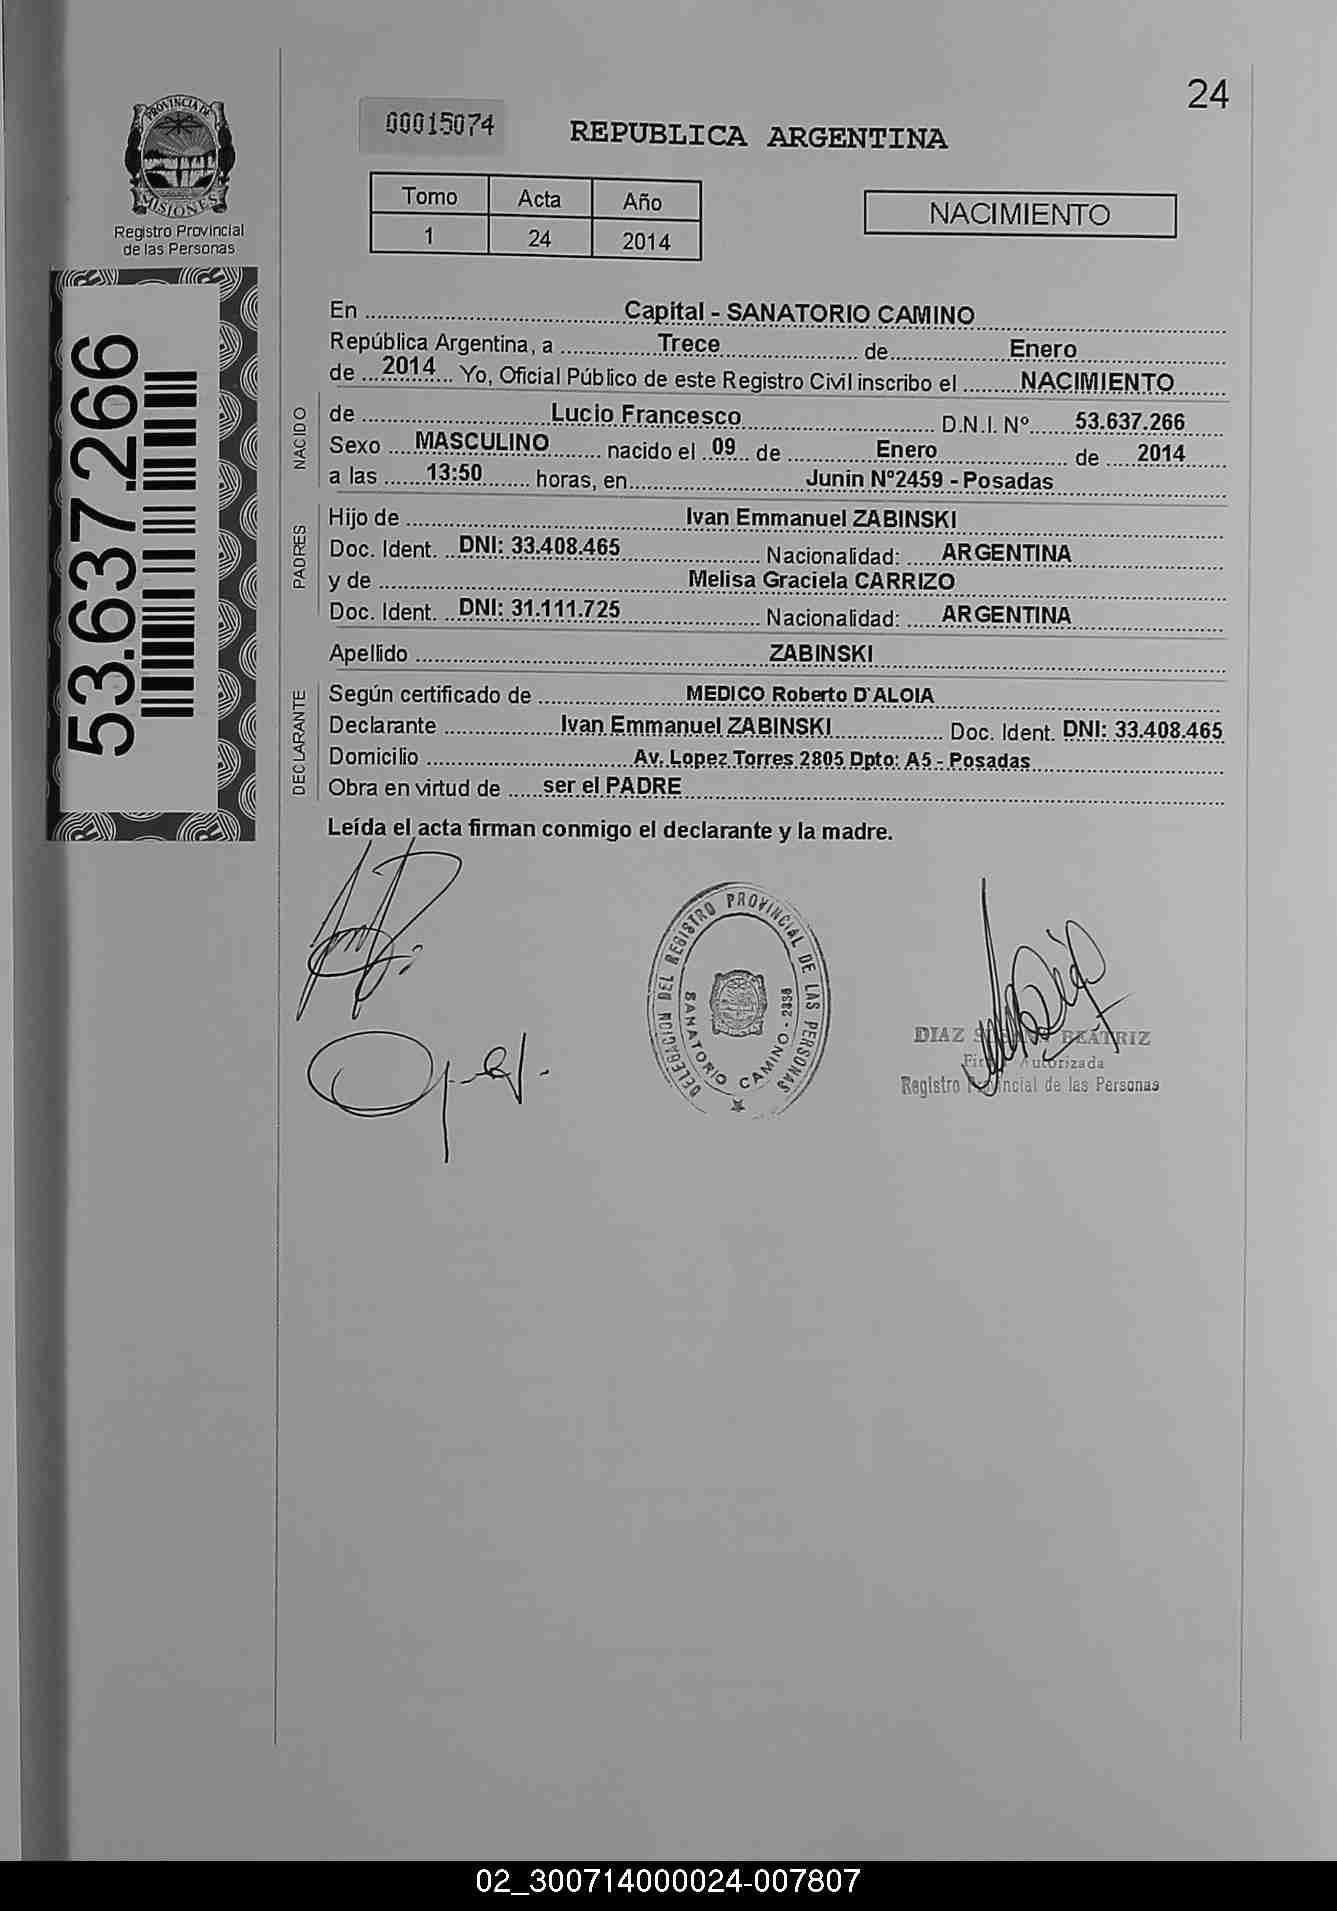 24
PROVINCIA DE
MISIONES
Registro Provincial
de las Personas
00015074
REPUBLICA ARGENTINA
Tomo Acta Año
1 24 2014
NACIMIENTO
53.637.266
En Capital - SANATORIO CAMINO
República Argentina, a Trece de Enero
de 2014 Yo, Oficial Público de este Registro Civil inscribo el NACIMIENTO
NACIDO
de Lucio Francesco D.N.I. Nº 53.637.266
Sexo MASCULINO nacido el 09 de Enero de 2014
a las 13:50 horas, en Junin Nº2459 - Posadas
PADRES
Hijo de Ivan Emmanuel ZABINSKI
Doc. Ident. DNI: 33.408.465 Nacionalidad: ARGENTINA
y de Melisa Graciela CARRIZO
Doc. Ident. DNI: 31.111.725 Nacionalidad: ARGENTINA
Apellido ZABINSKI
DECLARANTE
Según certificado de MEDICO Roberto D`ALOIA
Declarante Ivan Emmanuel ZABINSKI Doc. Ident. DNI: 33.408.465
Domicilio Av. Lopez Torres 2805 Dpto: A5 - Posadas
Obra en virtud de ser el PADRE
Leída el acta firman conmigo el declarante y la madre.
DELEGACION DEL REGISTRO PROVINCIAL DE LAS PERSONAS
SANATORIO CAMINO - 2338
DIAZ BEATRIZ
Autorizada
Registro Provincial de las Personas
02_300714000024-007807